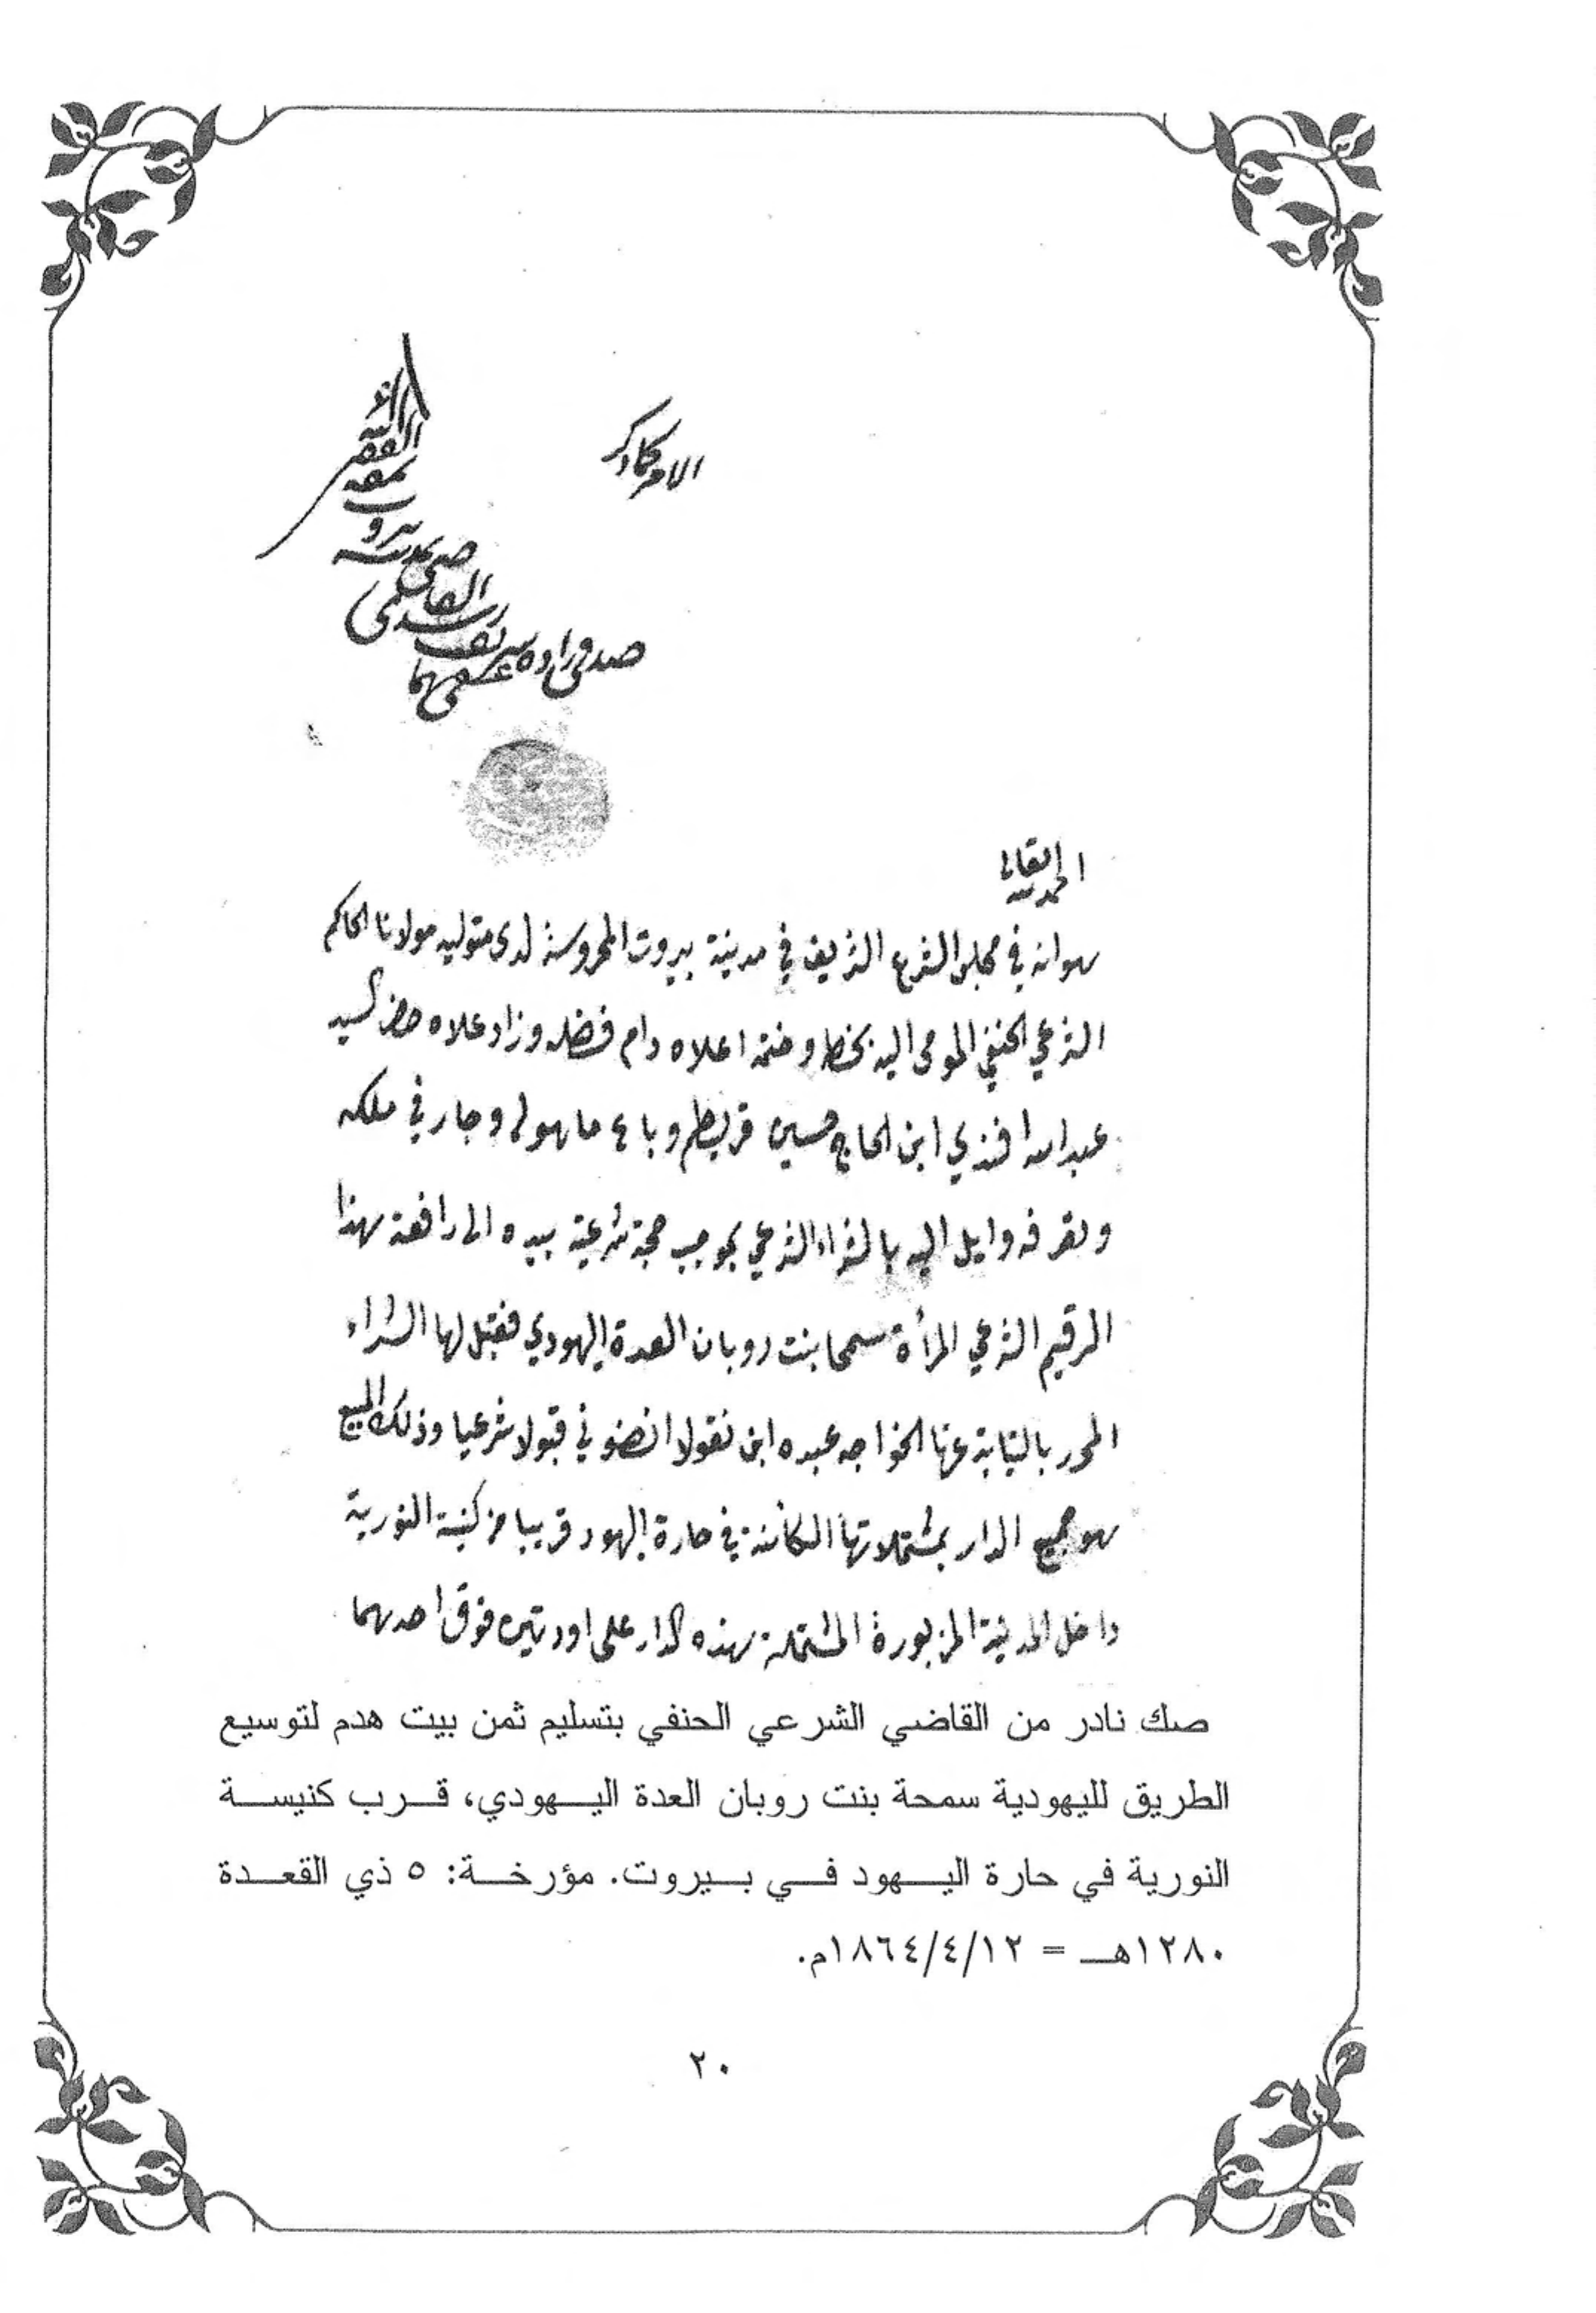 الامر كما ذكر
الحمد لله تعالى
هو انه في مجلس الشرع الشريف في مدينة بيروت المحروسة لدى متوليه مولانا الحاكم
الشرعي الحنفي المومى اليه بخطه وختمه اعلاه دام فضله وزاد علاه حضر السيد
عبد الله افندي ابن الحاج حسين قريطم وباع ما هو له وجار في ملكه
وتصرفه وايل اليه بالشراء الشرعي بموجب حجة شرعية بيده الى رافعة هذا
الرقيم الشرعي المرأة سمحا بنت روبان العدة اليهودي فقبل لها الشراء
المحرر بالنيابة عنها الخواجه عبده ابن نقولا انضوني قبولا شرعيا وذلك المبيع
هو جميع الدار بمشتملاتها الكائنة في حارة اليهود قريبا من كنيسة النورية
داخل المدينة المزبورة المشتملة هذه الدار على اودتين فوق احدهما
صك نادر من القاضي الشرعي الحنفي بتسليم ثمن بيت هدم لتوسيع
الطريق لليهودية سمحة بنت روبان العدة اليهودي، قرب كنيسة
النورية في حارة اليهود في بيروت. مؤرخة: ٥ ذي القعدة
١٢٨٠هـ = ١٨٦٤/٤/١٢م.
٢٠